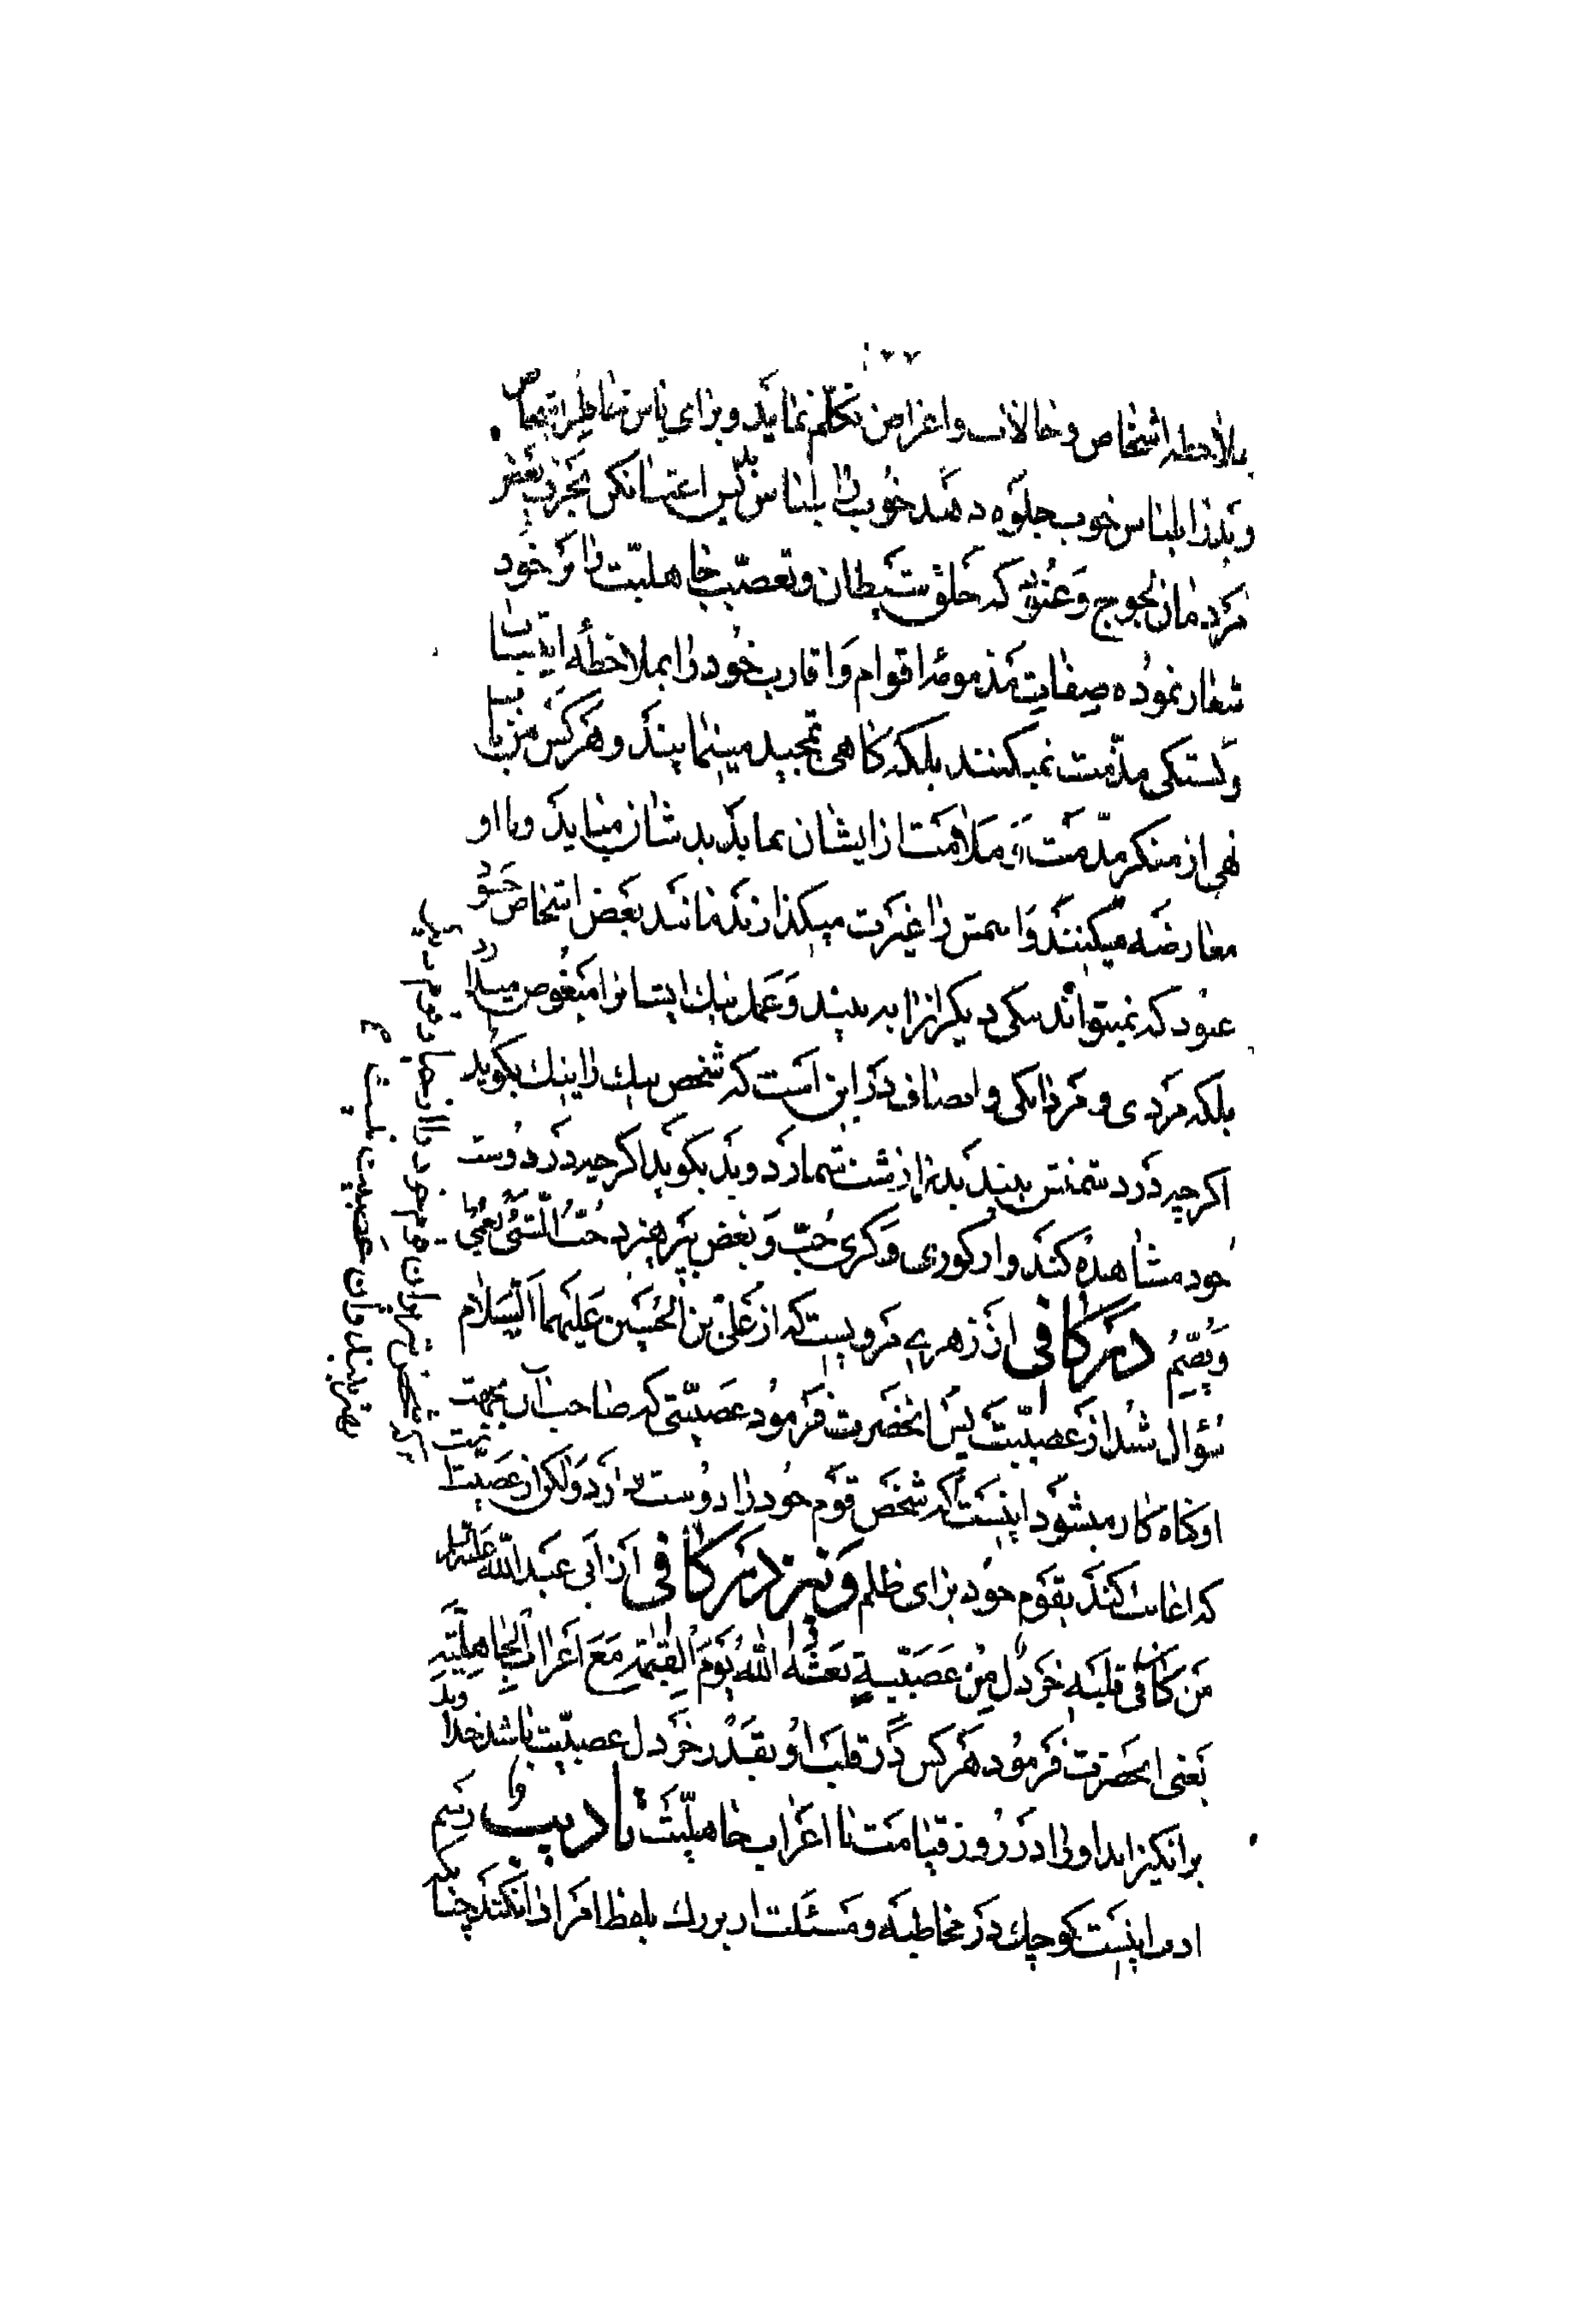 بملاحظه اشخاص و حالات و اغراض تکلّم نماید و برای پاس خاطر اینها
و بد را بلباس خوب جلوه دهند خوب را بلباس بد
مردمان لجوج و عنود که خلق شیطان و تعصّب جاهلیّت را بر خود
شعار نموده صفات مذمومهٔ اقوام و اقارب خود را بملاحظهٔ انتساب
و بستگی مذّمت نمیکنند بلکه گاهی تمجید مینمایند و هر کس من باب
نهی از منکر مذّمت و ملامت از ایشان نماید بدشان میاید و با او
معارضه میکنند و اسمش را غیرت میگذارند مانند بعض اشخاص حسود
عنود که نمیتوانند نیکی دیگرانرا به بینند و عمل نیک ایشانرا مبغوض میدارد
بلکه مردی و مردانگی و انصاف در این است که شخص نیک را نیک بگوید
اگرچه در دشمنش بیند بد را زشت شمارد و بد بگوید اگرچه در دوست
خود مشاهده کند و از کوری و کری حُبّ و بغض بپرهیزد حُبُّ الشّیء یُعمی
وَیُصِّمُ در کافی از زهری مرویست که از علیّ بن الحُسَین عَلَیهِما اَلسَّلام
سؤال شد از عصبیّت پس انحضرت فرمود عصبیّتی که صاحب آن بجهت
او گناه کار میشود اینست که شخص قوم خود را دوست دارد ولکن از عصبیّت
که اعانت کند بقوم خود برای ظلم و نیز در کافی از ابی عبد اللّه علیه السلام
مَن کانَ فی قلبِهِ خَردَل مِن عَصَبیّةٍ بَعَثَهُ اللّهُ یَومَ القِیمَةِ مَعَ اَعرابِ الجاهِلیَّةِ
یعنی انحضرت فرمود هر کس در قلب او بقدر خردل عصبیّت باشد خداوند
برانگیزاند او را در روز قیامت با اعراب جاهلیّت تادیب و رسم
ادب اینست کوچک در مخاطبه و مسئلت از بزرگ بلفظ افراد ادا نکند چنانکه